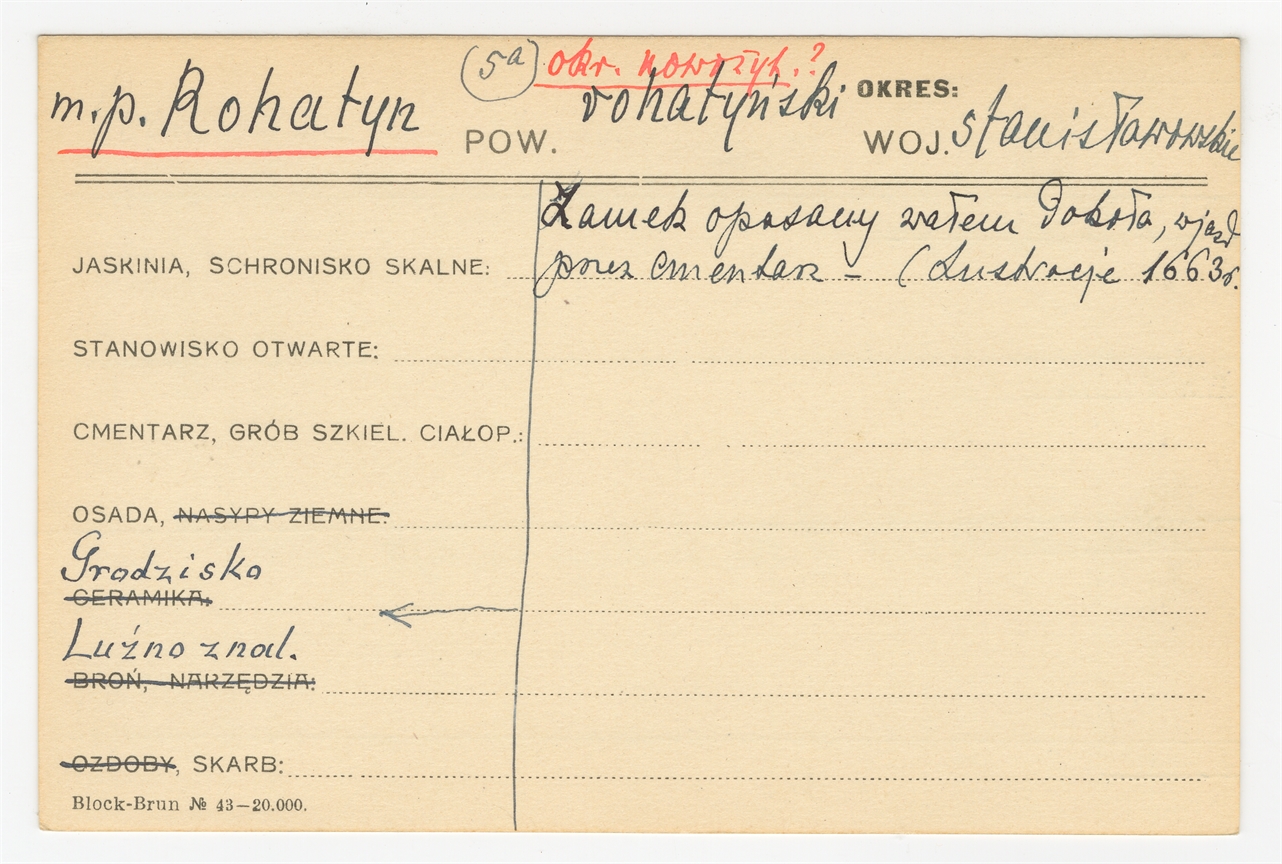 (5a) okr. nowożyt.?
m.p. Rohatyn POW. rohatyński OKRES: WOJ. stanisławowskie
Zamek opasany wałem dokoła, wjazd
JASKINIA, SCHRONISKO SKALNE: przez cmentarz – (Lustracje 1663r.
STANOWISKO OTWARTE:
CMENTARZ, GRÓB SZKIEL. CIAŁOP.:
OSADA, NASYPY ZIEMNE:
Grodzisko
CERAMIKA:
Luźno znal.
BROŃ, NARZĘDZIA:
OZDOBY, SKARB:
Block-Brun № 43—20.000.